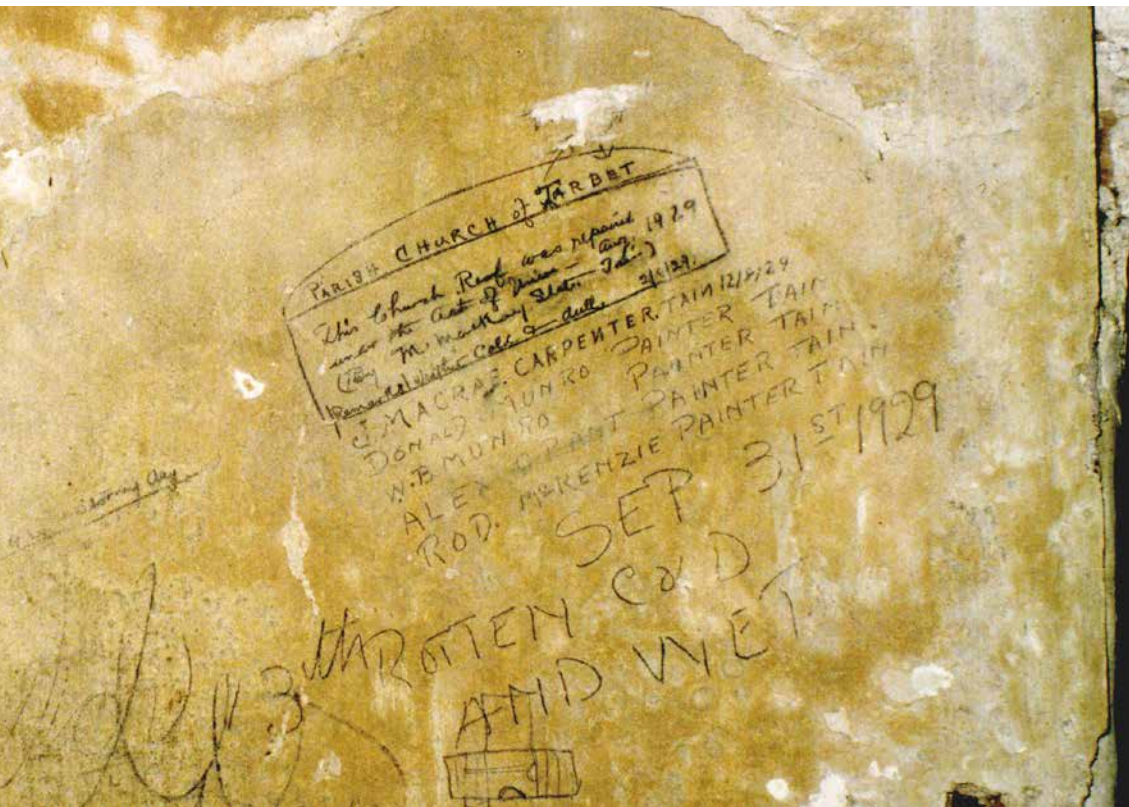 PARISH CHURCH of TARBET
This Church Roof was repaired
under the act of - Aug. 1929
(By M. Mackay Slater Tain)
Remarks dull 2/8/29.
J. MACRAE. CARPENTER. TAIN 12/8/29
DONALD MUNRO PAINTER TAIN
W. B MUNRO PAINTER TAIN
ALEX GRANT PAINTER TAIN.
ROD. McKENZIE PAINTER TAIN
SEP 31ST 1929
ROTTEN COLD
AND WET